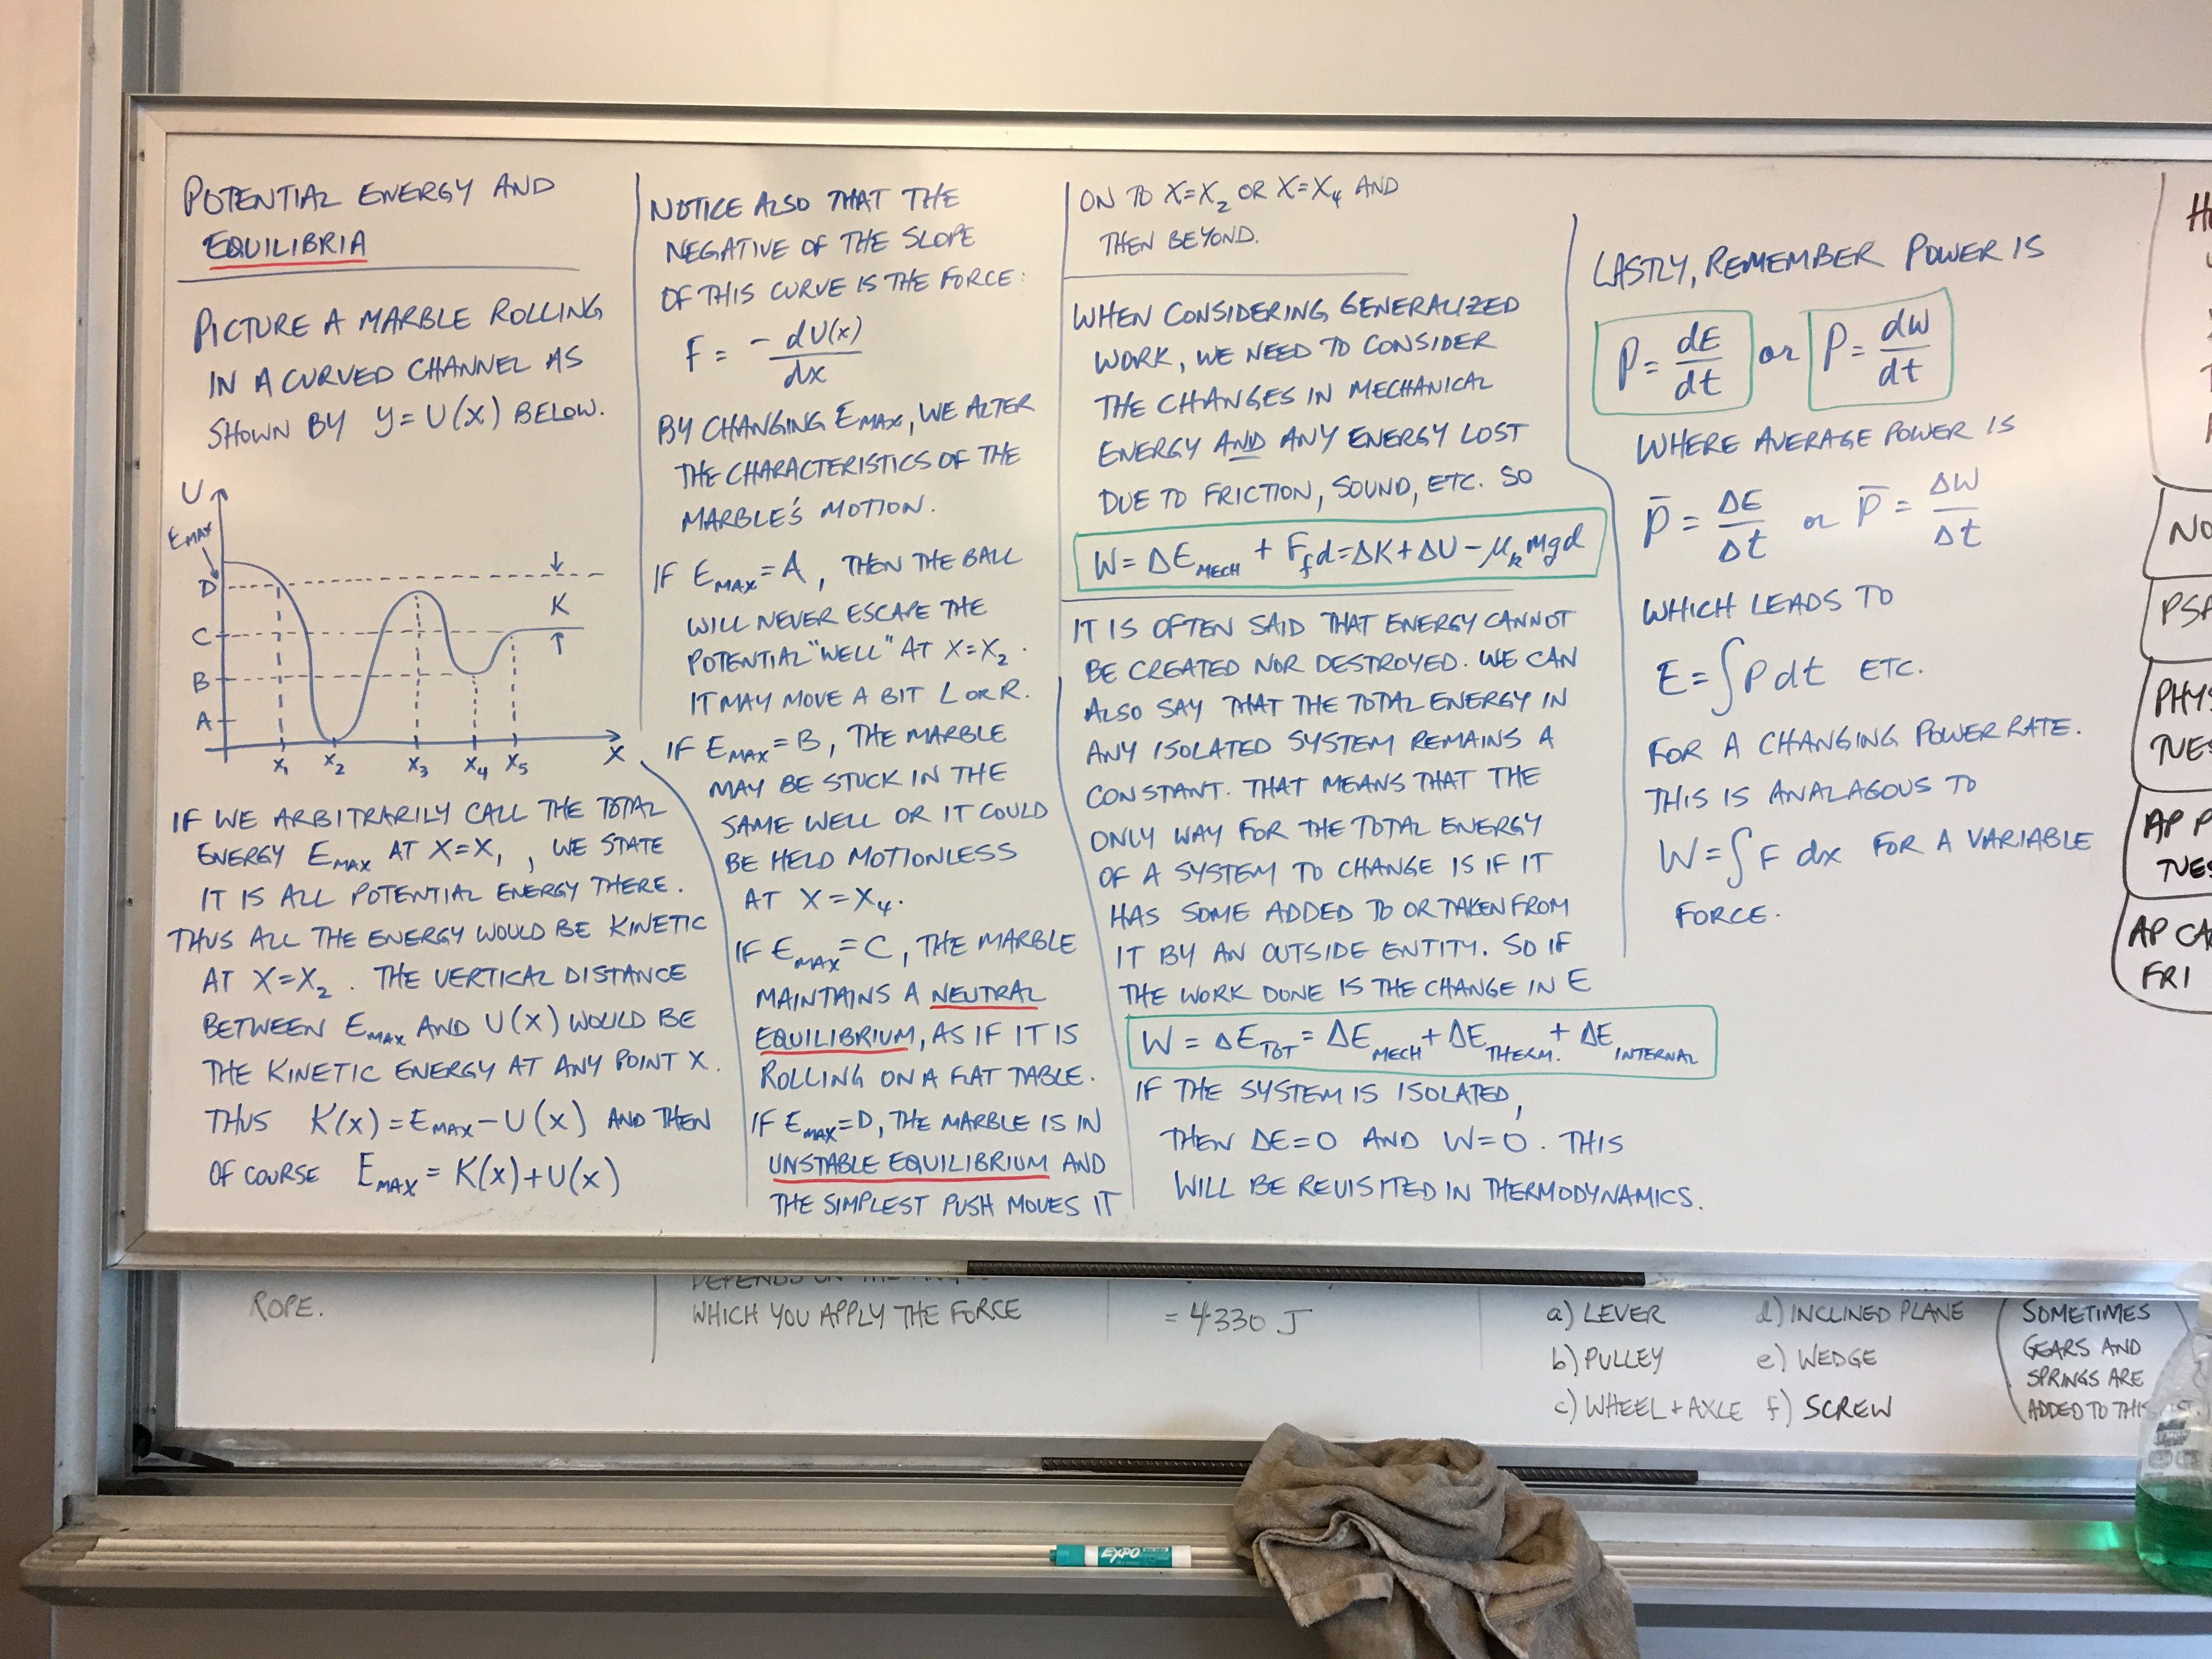 POTENTIAL ENERGY AND
EQUILIBRIA
PICTURE A MARBLE ROLLING
IN A CURVED CHANNEL AS
SHOWN BY y=U(X) BELOW.
U
EMAX
D
C
B
A
K
X₁ X₂ X₃ X₄ X₅ X
IF WE ARBITRARILY CALL THE TOTAL
ENERGY EMAX AT X=X₁, WE STATE
IT IS ALL POTENTIAL ENERGY THERE.
THUS ALL THE ENERGY WOULD BE KINETIC
AT X=X₂. THE VERTICAL DISTANCE
BETWEEN EMAX AND U(X) WOULD BE
THE KINETIC ENERGY AT ANY POINT X.
THUS K(X)=EMAX-U(X) AND THEN
OF COURSE EMAX=K(X)+U(X)
NOTICE ALSO THAT THE
NEGATIVE OF THE SLOPE
OF THIS CURVE IS THE FORCE:
F = - dU(x)/dx
BY CHANGING EMAX, WE ALTER
THE CHARACTERISTICS OF THE
MARBLE'S MOTION.
IF EMAX=A, THEN THE BALL
WILL NEVER ESCAPE THE
POTENTIAL "WELL" AT X=X₂.
IT MAY MOVE A BIT L OR R.
IF EMAX=B, THE MARBLE
MAY BE STUCK IN THE
SAME WELL OR IT COULD
BE HELD MOTIONLESS
AT X=X₄.
IF EMAX=C, THE MARBLE
MAINTAINS A NEUTRAL
EQUILIBRIUM, AS IF IT IS
ROLLING ON A FLAT TABLE.
IF EMAX=D, THE MARBLE IS IN
UNSTABLE EQUILIBRIUM AND
THE SIMPLEST PUSH MOVES IT
ON TO X=X₂ OR X=X₄ AND
THEN BEYOND.
WHEN CONSIDERING GENERALIZED
WORK, WE NEED TO CONSIDER
THE CHANGES IN MECHANICAL
ENERGY AND ANY ENERGY LOST
DUE TO FRICTION, SOUND, ETC. SO
W=ΔEMECH + Ffd=ΔK+ΔU-μkmgd
IT IS OFTEN SAID THAT ENERGY CANNOT
BE CREATED NOR DESTROYED. WE CAN
ALSO SAY THAT THE TOTAL ENERGY IN
ANY ISOLATED SYSTEM REMAINS A
CONSTANT. THAT MEANS THAT THE
ONLY WAY FOR THE TOTAL ENERGY
OF A SYSTEM TO CHANGE IS IF IT
HAS SOME ADDED TO OR TAKEN FROM
IT BY AN OUTSIDE ENTITY. SO IF
THE WORK DONE IS THE CHANGE IN E
W = ΔETOT = ΔEMECH + ΔETHERM. + ΔEINTERNAL
IF THE SYSTEM IS ISOLATED,
THEN ΔE=0 AND W=0. THIS
WILL BE REVISITED IN THERMODYNAMICS.
LASTLY, REMEMBER POWER IS
P = dE/dt or P = dW/dt
WHERE AVERAGE POWER IS
P̄ = ΔE/Δt or P̄ = ΔW/Δt
WHICH LEADS TO
E=∫P dt ETC.
FOR A CHANGING POWER RATE.
THIS IS ANALAGOUS TO
W=∫F dx FOR A VARIABLE
FORCE.
NO
PHYS
TUES
AP P
TUES
AP CA
FRI
ROPE.
WHICH YOU APPLY THE FORCE
= 4330 J
a) LEVER d) INCLINED PLANE
b) PULLEY e) WEDGE
c) WHEEL + AXLE f) SCREW
SOMETIMES
GEARS AND
SPRINGS ARE
ADDED TO THIS
EXPO